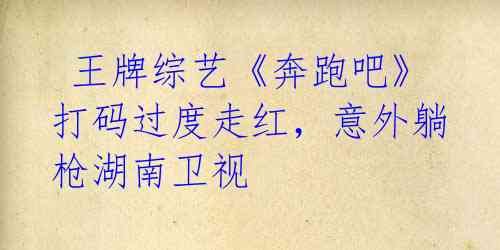 王牌综艺《奔跑吧》
打码过度走红，意外躺
枪湖南卫视